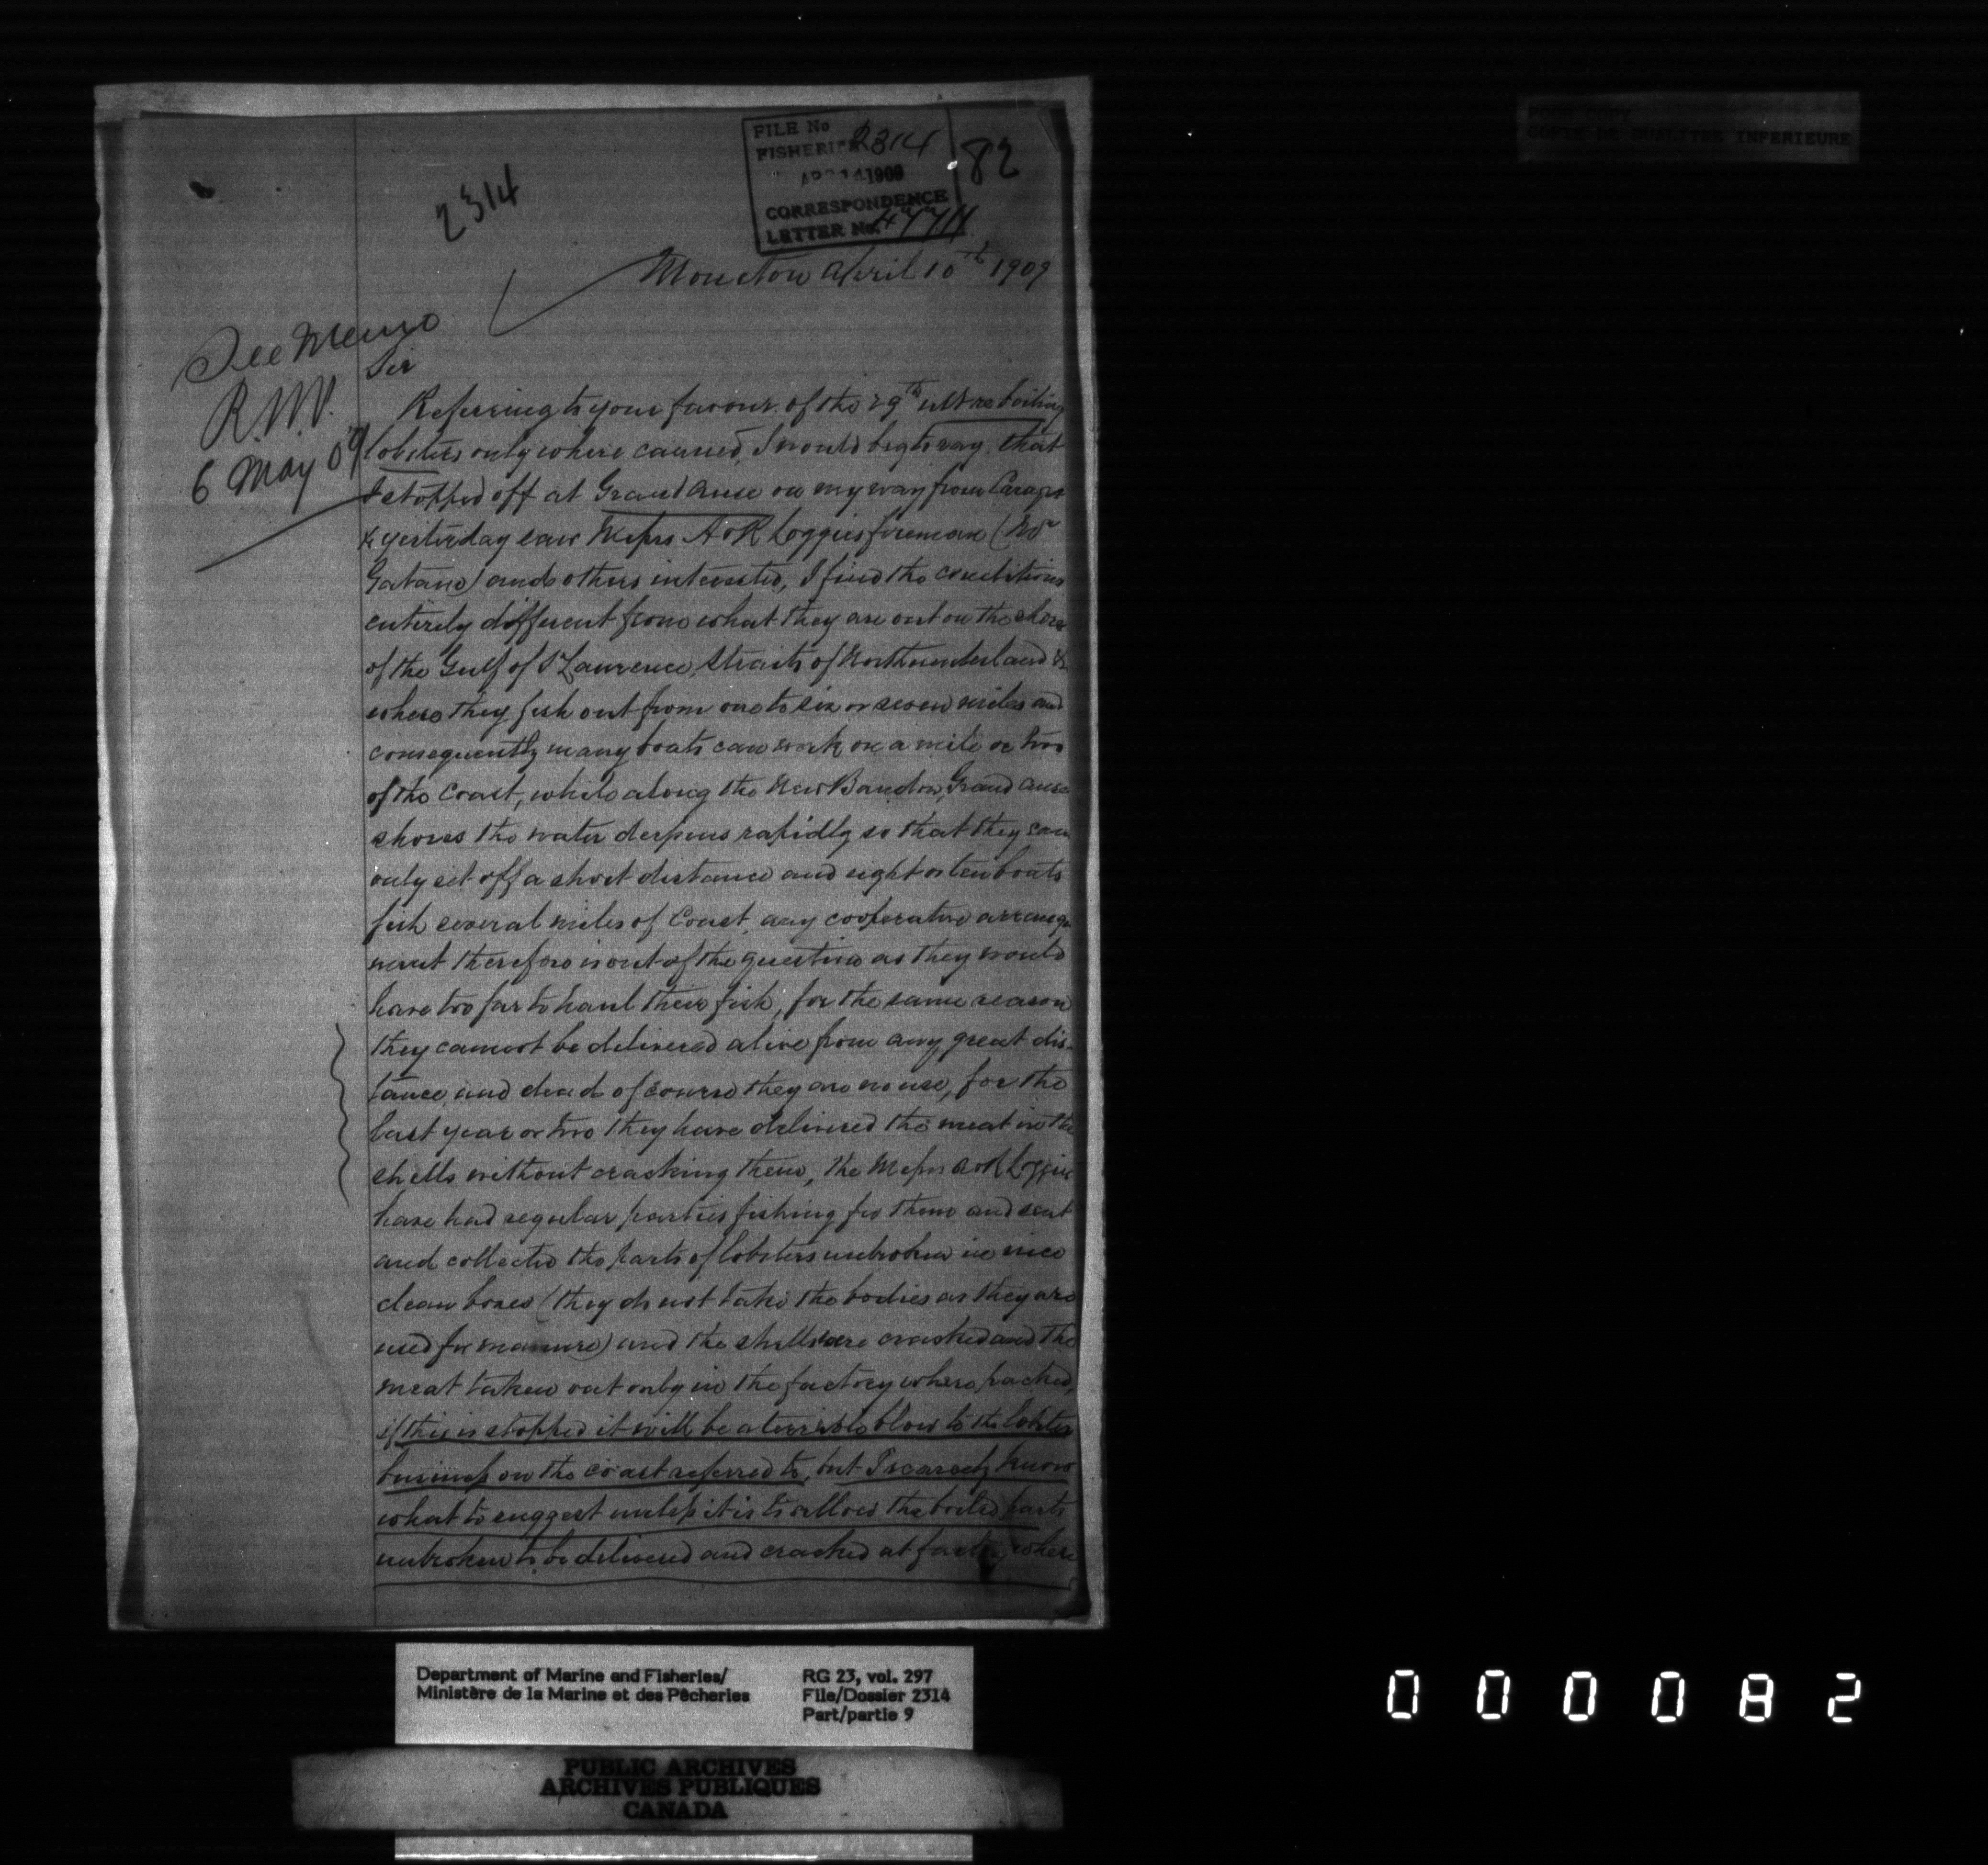 POOR COPY
COPIE DE QUALITEE INFERIEURE
FILE No
FISHERIES 2314
APR 14 1909
CORRESPONDENCE
LETTER No. 4771
82
2314
Moncton April 10th 1909
See Memo
R.N.V.
6 May 09
Sir
Referring to your favour of the 29th ult re boiling
lobsters only where canned, I would beg to say that
I stopped off at Grand Anse on my way from Caraquet
& yesterday saw Messrs A & R Loggies foreman (Mr
) and others interested, I find the conditions
entirely different from what they are out on the shore
of the Gulf of St Lawrence, Straits of Northumberland &
where they fish out from one to six or seven miles and
consequently many boats can work on a mile or two
of the Coast, while along the New Bandon, Grand Anse
shores the water deepens rapidly so that they can
only set off a short distance and eight or ten boats
fish several miles of Coast, any cooperative arrange
ment therefore is out of the question as they would
have too far to haul their fish, for the same reason
they cannot be delivered alive from any great dis-
tance, and dead of course they are no use, for the
last year or two they have delivered the meat in the
shells without cracking them, the Messrs A & R Loggie
have had regular parties fishing for them and sent
and collected the parts of lobsters unbroken in nice
clean boxes (they do not take the bodies as they are
used for manure) and the shells are cracked and the
meat taken out only in the factory where packed,
if this is stopped it will be a terrible blow to the lobster
business on the coast referred to, but I scarcely know
what to suggest unless it is to allow the boiled parts
unbroken to be delivered and cracked at factory where
Department of Marine and Fisheries/
Ministère de la Marine et des Pêcheries
RG 23, vol. 297
File/Dossier 2314
Part/partie 9
PUBLIC ARCHIVES
ARCHIVES PUBLIQUES
CANADA
000082